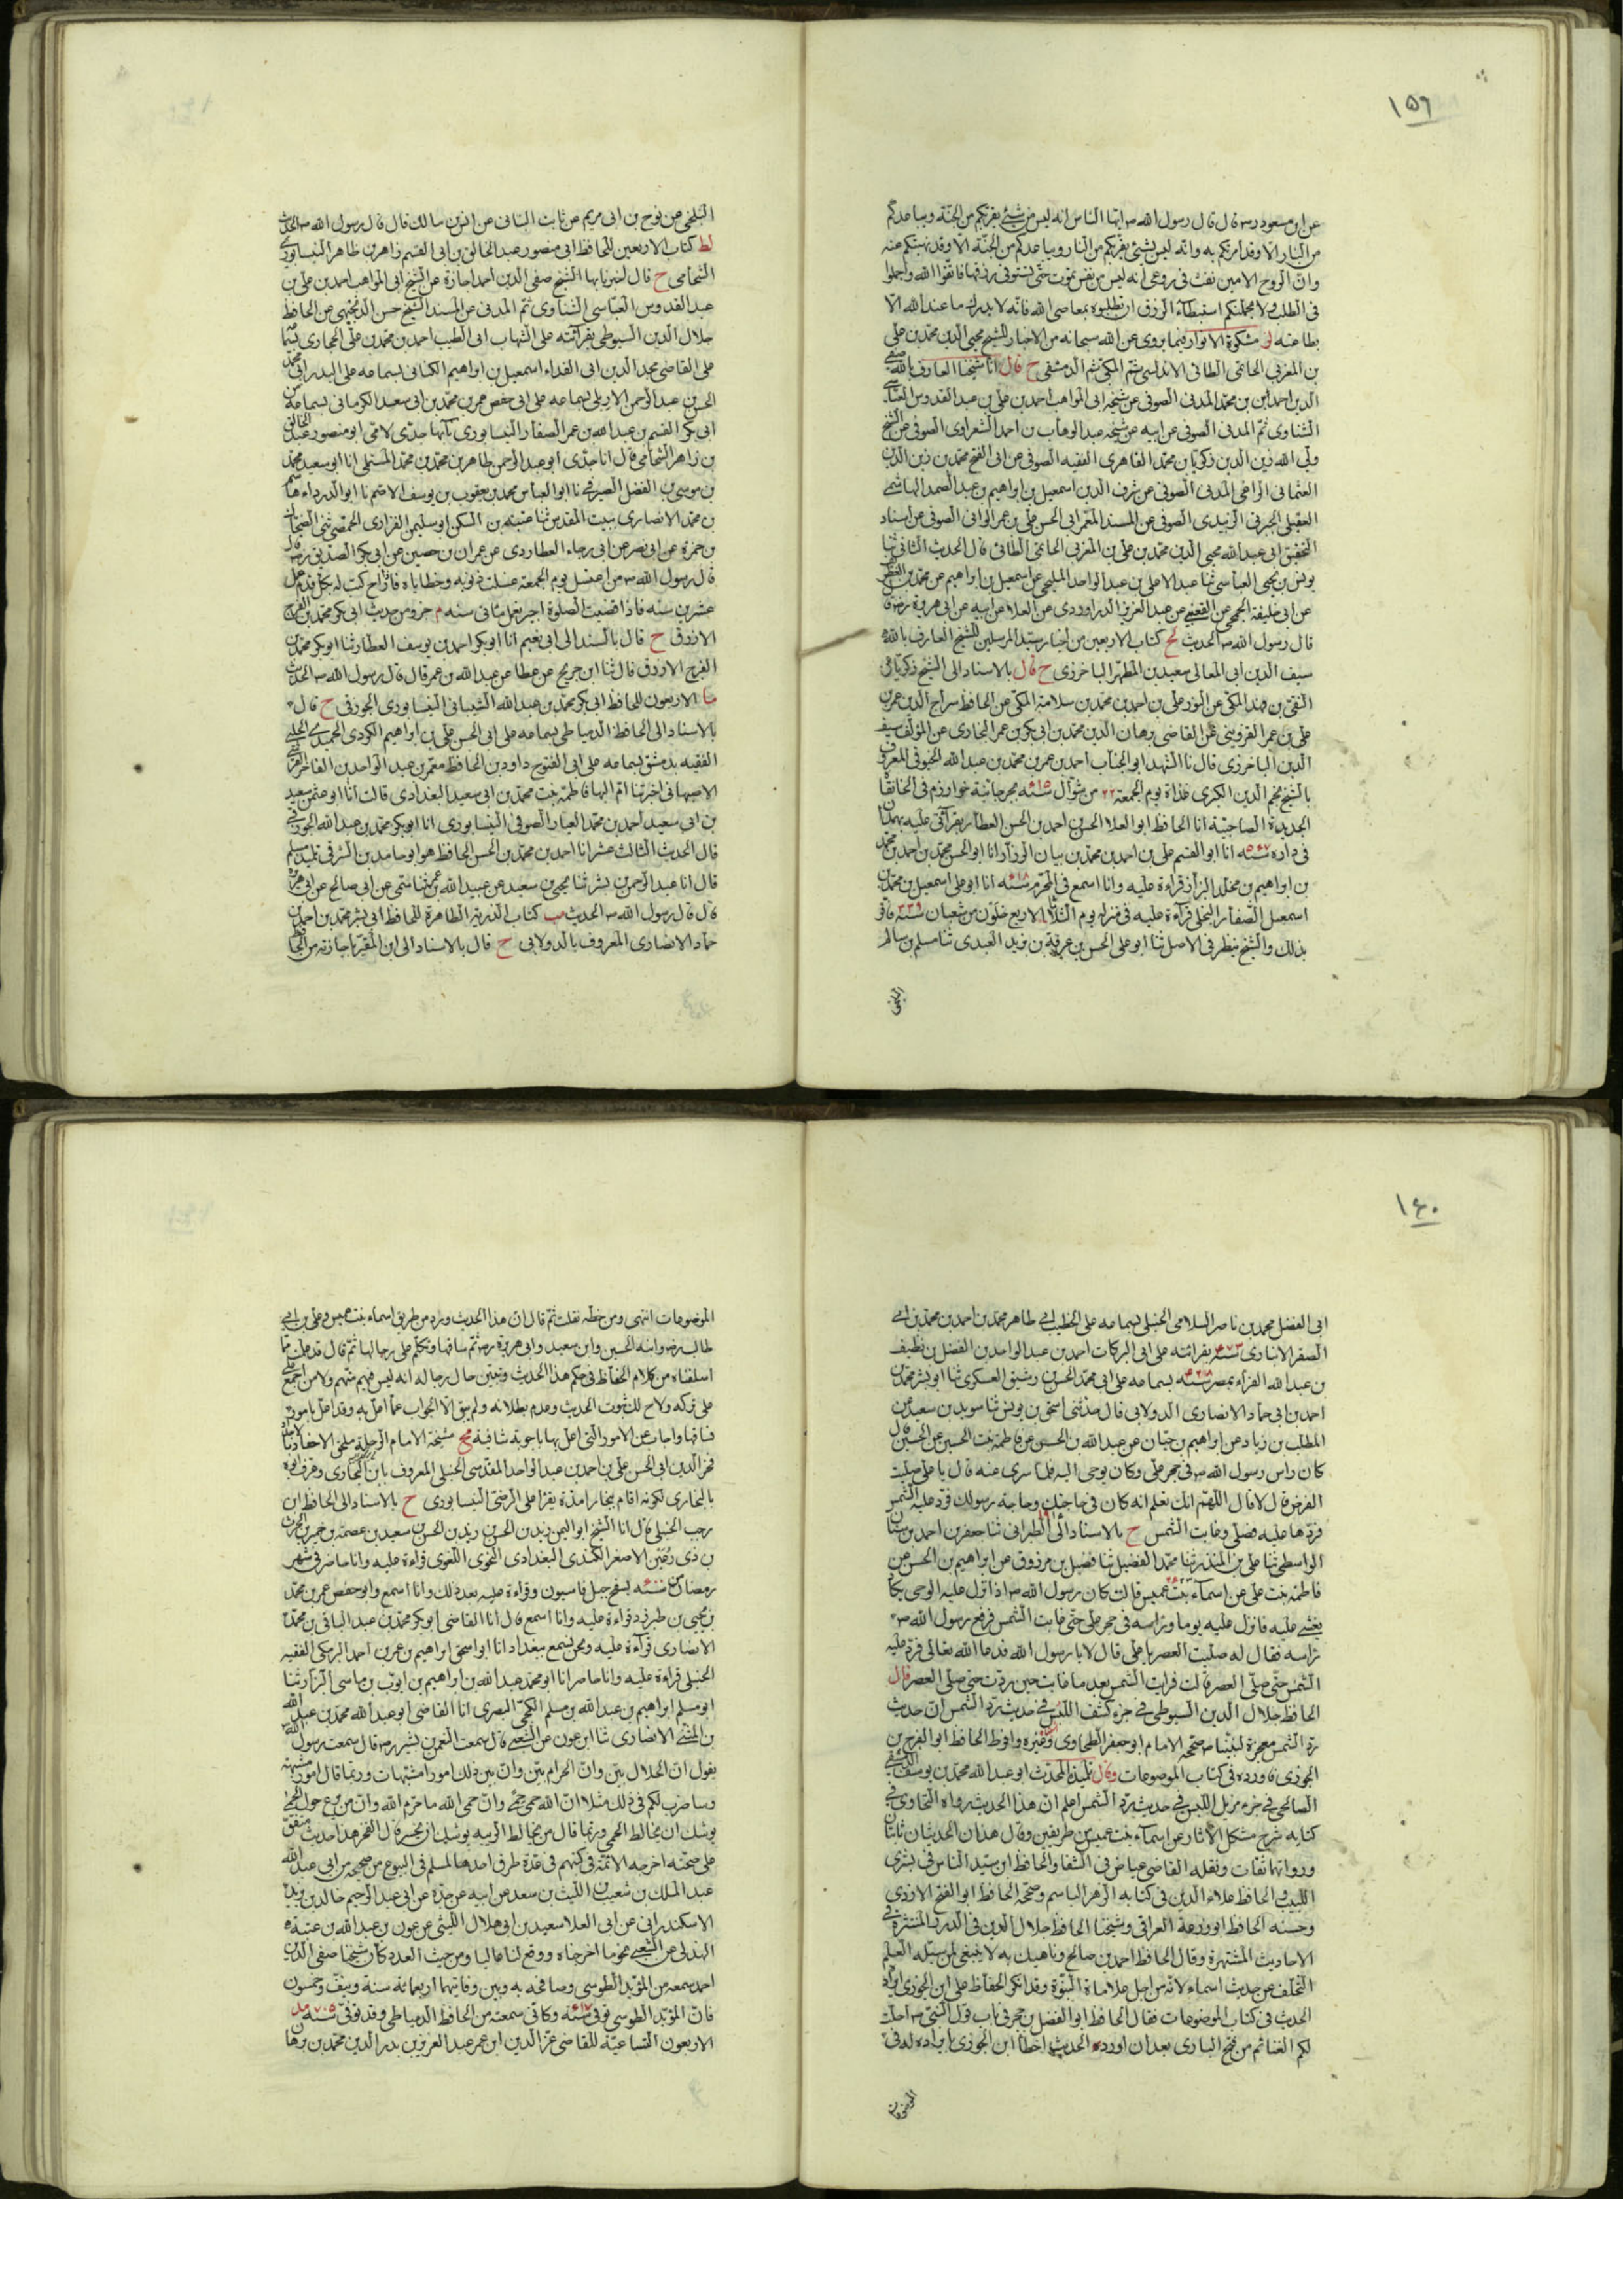 ١٥٩
عن ابن مسعود رضہ قال قال رسول الله صہ ايها الناس انه ليس من شئ يقربكم من الجنة ويباعدكم
من النار الا وقد امرتكم به وانه ليس شئ يقربكم من النار ويباعدكم من الجنة الا وقد نهيتكم عنه
وان الروح الامين نفث فى روعى انه ليس من نفس تموت حتى تستوفى رزقها فاتقوا الله واجملوا
فى الطلب ولا يحملنكم استبطاء الرزق ان تطلبوه بمعاصى الله فانه لا يدرك ما عند الله الا
بطاعته لز مشكوة الانوار فيما يروى عن الله سبحانه من الاخبار للشيخ محيى الدين محمد بن على
بن المغربى الحاتمى الطائى الاندلسى ثم المكى ثم الدمشقى ح قال انا شيخنا العارف بالله صفى
الدين احمد بن محمد المدنى الصوفى عن شيخه ابى المواهب احمد بن على بن عبد القدوس العباسى
الشناوى ثم المدنى الصوفى عن ابيه عن شيخه عبد الوهاب بن احمد الشعراوى الصوفى عن الشيخ
ولى الله زين الدين زكريا بن محمد القاهرى الفقيه الصوفى عن ابى الفتح محمد بن زين الدين
العثمانى المراغى المدنى الصوفى عن شرف الدين اسمعيل بن ابراهيم بن عبد الصمد الهاشمى
العقيلى الجبرتى الزبيدى الصوفى عن المسند المعمر ابى الحسن على بن عمر الوانى الصوفى عن استاد
التحقيق ابى عبد الله محيى الدين محمد بن على بن المغربى الحاتمى الطائى قال الحديث الثانى ثنا
يونس بن يحيى العباسى ثنا عبد الاعلى بن عبد الواحد المليحى عن اسمعيل بن ابراهيم عن محمد بن
عن ابى خليفة الجمحى عن القعنبى عن عبد العزيز الدراوردى عن العلا عن ابيه عن ابى هريرة رضہ
قال رسول الله صہ الحديث لح كتاب الاربعين من اخبار سيد المرسلين للشيخ العارف بالله
سيف الدين ابى المعالى سعيد بن المطهر الباخرزى ح قال بالاسناد الى الشيخ زكريا عن
التقى بن فهد المكى عن النور على بن احمد بن محمد بن سلامة المكى عن الحافظ سراج الدين عمر بن
على بن عمر القزوينى عن القاضى برهان الدين محمد بن ابى بكر بن عمر البخارى عن المؤلف سيف
الدين الباخرزى قال نا الشهيد ابو الجناب احمد بن عمر بن محمد بن عبد الله الخيوفى المعروف
بالشيخ نجم الدين الكبرى غداة يوم الجمعة ٢٢ من شوال سنہ ٦١٥ بجرجانية خوارزم فى الخانقاه
الجديدة الصاحبية انا الحافظ ابو العلا الحسن بن احمد بن الحسن العطار بقرآتى عليه بهمدان
فى داره سنہ ٥٦٧ انا ابو القسم على بن احمد بن محمد بن بيان الرزاز انا ابو الحسن محمد بن محمد
بن ابراهيم بن مخلد البزاز قراءة عليه وانا اسمع فى المحرم سنہ انا ابو على اسمعيل بن محمد بن
اسمعيل الصفار البجلى قرآءة عليه فى منزله يوم الثلاثا لاربع خلون من شعبان سنہ ٣٣٩ فاقر
بذلك والشيخ ينظر فى الاصل ثنا ابو على الحسن بن عرفة بن يزيد العبدى ثنا مسلم بن سالم
البلخى
البلخى عن نوح بن ابى مريم عن ثابت البنانى عن انس بن مالك قال قال رسول الله صہ الحديث
لط كتاب الاربعين للحافظ ابى منصور عبد الخالق بن ابى القسم زاهر بن طاهر النيسابورى
الشحامى ح قال اخبرنا بها الشيخ صفى الدين احمد اجازة عن الشيخ ابى المواهب احمد بن على بن
عبد القدوس العباسى الشناوى ثم المدنى عن المسند الشيخ حسن الدنجيهى عن الحافظ
جلال الدين السيوطى بقرآئته على الشهاب ابى الطيب احمد بن محمد بن على الحجازى
على القاضى مجد الدين ابى الفداء اسمعيل بن ابراهيم الكنانى بسماعه على البدر ابى محمد
الحسن بن عبد الرحمن الاربلى بسماعه على ابى حفص عمر بن محمد بن ابى سعيد الكرمانى بسماعه من
ابى بكر القسم بن عبد الله بن عمر الصفار النيسابورى انا بها جدى لامى ابو منصور عبد الخالق
بن زاهر الشحامى قال انا جدى ابو عبد الرحمن طاهر بن محمد بن محمد المستملى انا ابو سعيد محمد
بن موسى بن الفضل الصيرفى نا ابو العباس محمد بن يعقوب بن يوسف الاصم نا ابو الدرداء هاشم
بن محمد الانصارى ببيت المقدس ثنا عتبة بن السكن ابو سليمن الفزارى الحمصى ثنى الضحاك
بن حمزة عن ابى نصر عن ابى رجاء العطاردى عن عمران بن حصين عن ابى بكر الصديق رضہ قال
قال رسول الله صہ من اغتسل يوم الجمعة غسلت ذنوبه وخطاياه فاذا راح كتب له بكل قدم عمل
عشرين سنة فاذا قضيت الصلوة اجيز بعمل مائتى سنة م جزو من حديث ابى بكر محمد بن الفرج
الازرق ح قال بالسند الى ابى نعيم انا ابو بكر احمد بن يوسف العطار ثنا ابو بكر محمد بن
الفرج الازرق قال ثنا ابن جريج عن عطا عن عبد الله بن عمر قال قال رسول الله صہ الحديث
ما الاربعون للحافظ ابى بكر محمد بن عبد الله الشيبانى النيسابورى الجوزقى ح قال
بالاسناد الى الحافظ الدمياطى بسماعه على ابى الحسن على بن ابراهيم الكردى الحميدى
الفقيه بدمشق بسماعه على ابى الفتوح داود بن الحافظ معمر بن عبد الواحد بن الفاخر القرشى
الاصبهانى اخبرتنا ام البها فاطمة بنت محمد بن ابى سعيد البغدادى قالت انا ابو عثمن سعيد
بن ابى سعيد احمد بن محمد العيار الصوفى النيسابورى انا ابو بكر محمد بن عبد الله الجوزقى
قال الحديث الثالث عشر انا احمد بن محمد بن الحسن الحافظ هو ابو حامد بن الشرقى تلميذ مسلم
قال انا عبد الرحمن بن بشر ثنا يحيى بن سعيد عن عبيد الله بن عمر ثنا سمى عن ابى صالح عن ابى هريرة
قال قال رسول الله صہ الحديث مب كتاب الذرية الطاهرة للحافظ ابى بشر محمد بن احمد بن
حماد الانصارى المعروف بالدولابى ح قال بالاسناد الى ابن المقير باجازته من الحافظ
١٤٠
ابى الفضل محمد بن ناصر السلامى الحنبلى بسماعه على الخطيب ابى طاهر محمد بن احمد بن محمد بن ابى
الصقر الانبارى سنہ بقرائته على ابى البركات احمد بن عبد الواحد بن الفضل بن نظيف
بن عبد الله الفراء بمصر سنہ بسماعه على ابى محمد الحسن بن رشيق العسكرى ثنا ابو بشر محمد بن
احمد بن ابى حماد الانصارى الدولابى قال حدثنى اسحق بن يونس ثنا سويد بن سعيد عن
المطلب بن زياد عن ابراهيم بن حيان عن عبد الله بن الحسن عن فاطمة بنت الحسين عن الحسين قال
كان راس رسول الله صہ فى حجر على وكان يوحى اليه فلما سرى عنه قال يا على صليت
الفرض قال لا قال اللهم انك تعلم انه كان فى حاجتك وحاجة رسولك فرد عليه الشمس
فردها عليه فصلى وغابت الشمس ح بالاسناد الى الطبرانى ثنا جعفر بن احمد بن سنان
الواسطى ثنا على بن المنذر ثنا محمد بن الفضيل ثنا فضيل بن مرزوق عن ابراهيم بن الحسن عن
فاطمة بنت على عن اسماء بنت عميس قالت كان رسول الله صہ اذا نزل عليه الوحى يكاد
يغشى عليه فانزل عليه يوما وراسه فى حجر على حتى غابت الشمس فرفع رسول الله صہ
راسه فقال له صليت العصر يا على قال لا يا رسول الله فدعا الله تعالى فرد عليه
الشمس حتى صلى العصر قالت فرايت الشمس بعد ما غابت حين ردت حتى صلى العصر قال
الحافظ جلال الدين السيوطى فى جزء كشف اللبس فى حديث رد الشمس ان حديث
رد الشمس معجزة لنبينا صہ صححه الامام ابو جعفر الطحاوى وغيره وافرط الحافظ ابو الفرج بن
الجوزى فاورده فى كتاب الموضوعات وقال تلميذه المحدث ابو عبد الله محمد بن يوسف الدمشقى
الصالحى فى جزء مزيل اللبس فى حديث رد الشمس اعلم ان هذا الحديث رواه الطحاوى فى
كتابه شرح مشكل الآثار عن اسماء بنت عميس من طريقين وقال هذان الحديثان ثابتان
ورواتهما ثقات ونقله القاضى عياض فى الشفا والحافظ ابن سيد الناس فى بشرى
اللبيب والحافظ علاء الدين فى كتابه الزهر الباسم وصححه الحافظ ابو الفتح الازدى
وحسنه الحافظ ابو زرعة العراقى وشيخنا الحافظ جلال الدين فى الدرر المنتثرة فى
الاحاديث المشتهرة وقال الحافظ احمد بن صالح وناهيك به لا ينبغى لمن سبيله العلم
التخلف عن حديث اسماء لانه من اجل علامات النبوة وقد انكر الحفاظ على ابن الجوزى ايراد
الحديث فى كتاب الموضوعات فقال الحافظ ابو الفضل بن حجر فى باب قول النبى صہ احلت
لكم الغنائم من فتح البارى بعد ان اورد الحديث اخطا ابن الجوزى بايراده له فى
الموضوعات
الموضوعات انتهى ومن خطه نقلت ثم قال ان هذا الحديث ورد من طريق اسماء بنت عميس وعلى بن ابى
طالب رضہ وابنه الحسين وابى سعيد وابى هريرة رضہ ثم ساقها وتكلم على رجالها ثم قال قد علمت مما
اسلفناه من كلام الحفاظ فى حكم هذا الحديث وتبين حال رجاله انه ليس فيهم متهم ولا من اجمع
على تركه ولاح لك ثبوت الحديث وعدم بطلانه ولم يبق الا الجواب عما اعل به وقد اعل بامور
فساقها واجاب عن الامور التى اعل بها باجوبة شافية مج مشيخة الامام الرحلة ملحق الاحفاد بالاجداد
فخر الدين ابى الحسن على بن احمد بن عبد الواحد المقدسى الحنبلى المعروف بابن البخارى وعرف ابوه
بالبخارى لكونه اقام ببخارا مدة يقرا على الرضى النيسابورى ح بالاسناد الى الحافظ ابن
رجب الحنبلى قال انا الشيخ ابو اليمن زيد بن الحسن بن زيد بن الحسن بن سعيد بن عصمة بن حمير بن الحرث
بن ذى رعين الاصغر الكندى البغدادى النحوى اللغوى قراءة عليه وانا حاضر فى شهر
رمضان من سنہ بسفح جبل قاسيون وقراءة عليه بعد ذلك وانا اسمع وابو حفص عمر بن محمد
بن يحيى بن طبرزد قراءة عليه وانا اسمع قال انا القاضى ابو بكر محمد بن عبد الباقى بن محمد
الانصارى قرآءة عليه ونحن نسمع ببغداد انا ابو اسحق ابراهيم بن عمر بن احمد البرمكى الفقيه
الحنبلى قراءة عليه وانا حاضر انا ابو محمد عبد الله بن ابراهيم بن ايوب بن ماسى البزاز ثنا
ابو مسلم ابراهيم بن عبد الله بن مسلم الكجى البصرى انا القاضى ابو عبد الله محمد بن عبد الله
بن المثنى الانصارى ثنا ابن عون عن الشعبى قال سمعت النعمن بن بشير رضہ قال سمعت رسول الله
يقول ان الحلال بين وان الحرام بين وان بين ذلك امورا مشتبهات وربما قال امور مشتبهة
وساضرب لكم فى ذلك مثلا ان الله حمى حمى وان حمى الله ما حرم الله وان من يرع حول الحمى
يوشك ان يخالط الحمى وربما قال من يخالط الريبة يوشك ان يجسر قال الفخر هذا حديث متفق
على صحته اخرجه الائمة فى كتبهم فى عدة طرق احدها لمسلم فى البيوع من صحيحه عن ابى عبد الله
عبد الملك بن شعيب بن الليث بن سعد عن ابيه عن جده عن ابى عبد الرحيم خالد بن يزيد
الاسكندرانى عن ابى العلا سعيد بن ابى هلال الليثى عن عون بن عبد الله بن عتبة
الهذلى عن الشعبى نحو ما اخرجناه ووقع لنا عاليا ومن حيث العدد كان شيخنا صفى الدين
احمد سمعه من المؤيد الطوسى وصافحه به وبين وفاتيهما اربعمائة سنة ونيف وخمسون
فان المؤيد الطوسى توفى سنہ ٦١٧ وكانى سمعته من الحافظ الدمياطى وقد توفى سنہ ٧٠٥ مد
الاربعون التساعية للقاضى عز الدين ابن عمر عبد العزيز بن بدر الدين محمد بن برها